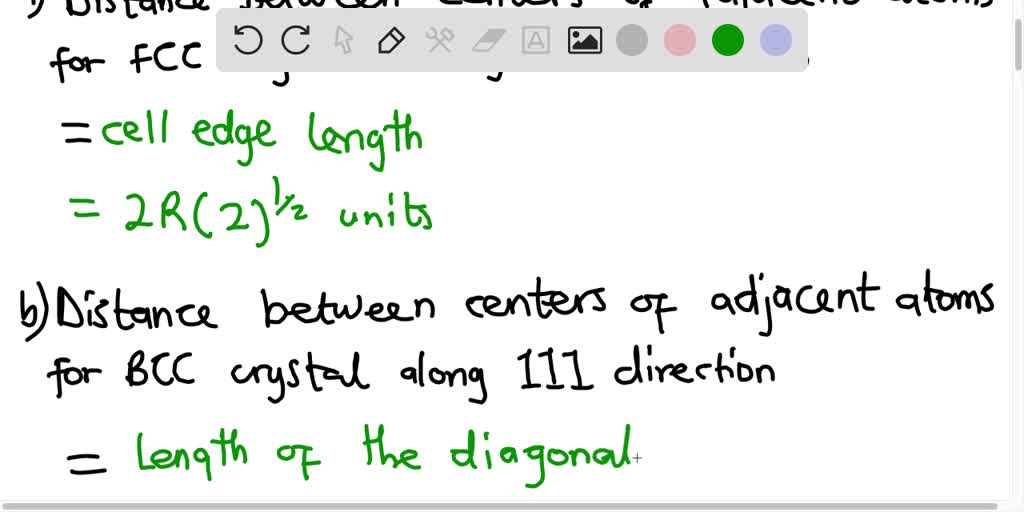 Distance between centers of adjacent atoms
for FCC
= cell edge length
= 2R(2)^1/2 units
b) Distance between centers of adjacent atoms
for BCC crystal along 111 direction
= Length of the diagonal